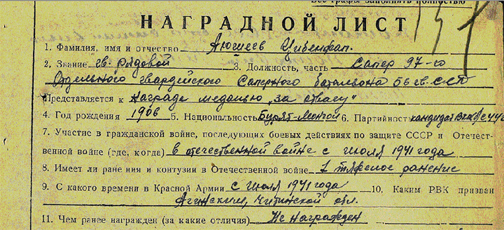 НАГРАДНОЙ ЛИСТ
1. Фамилия, имя и отчество Аюшеев Цибенжап.
2. Звание гв. рядовой 3. Должность, часть Сапер 97-го
Отдельного Гвардейского Саперного баталиона 56 гв. ССП
Представляется к Награде медалью "за отвагу"
4. Год рождения 1906 5. Национальность Бурят-Монгол 6. Партийность кандидат
7. Участие в гражданской войне, последующих боевых действиях по защите СССР и Отечест-
венной войне (где, когда) в отечественной войне с июля 1941 года
8. Имеет ли ране ия и контузии в Отечественной войне. 1 тяжелое ранение
9. С какого времени в Красной Армии с июля 1941 года 10. Каким РВК призван
Агинским, Читинской обл.
11. Чем ранее награжден (за какие отличия) Не награжден